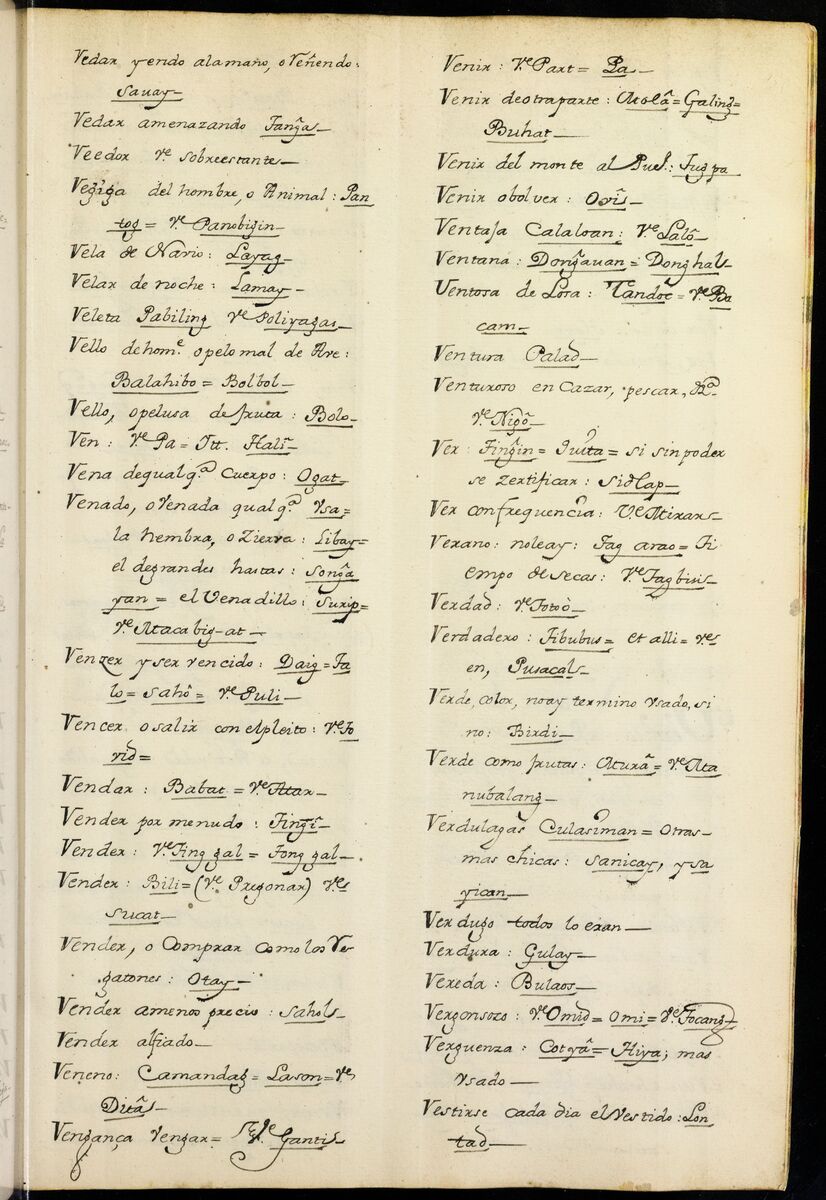 Vedar yendo a la mano, o veñendo:
Sauay_
Vedar amenazando Tang̃a_
Veedor Vᵉ sobreestante_
Vegiga del hombre, o Animal: Pan
tog= Vᵉ Panobigin_
Vela de Navio: Layag_
Velar de noche: Lamay_
Veleta Pabiling Vᵉ Poliyagas_
Vello de homᵉ o pelo mal de Ave:
Balahibo= Bolbol_
Vello, o pelusa de fruta: Bolo_
Ven: Vᵉ Pa= Itt. Hali_
Vena de qualqᵃ Cuerpo: Ogat_
Venado, o Venada qualqᵃ Vsa=
la hembra, o Zierva: Libay=
el de grandes hastas: Song̃a
yan= el Venadillo: Surip=
Vᵉ Macabig-at_
Venzer y ser vencido: Daig= Ta
lo= Sahô= Vᵉ Puli_
Vencer o salir con el pleito: Vᵉ To
vid=
Vendar: Babat= Vᵉ Atar_
Vender por menudo: Tingî_
Vender: Vᵉ Ting gal= Tong gal_
Vender: Bili= (Vᵉ Pregonar) Vᵉˢ
Sucat_
Vender, o Comprar como los Re-
gatones: Otay_
Vender a menos precio: Sahol_
Vender al fiado_
Veneno: Camandag= Lason= Vᵉ
Ditâ_
Vengança Vengar= Vᵉ Ganti_
Venir: Vᵉ Part= Pa_
Venir de otra parte: Molâ= Galing=
Buhat_
Venir del monte al Puᵉ.: Tugpa
Venir o bolver: Ovî_
Ventaja Calaloan: Vᵉ Lalô_
Ventana: Dong̃auan= Donghal_
Ventosa de Losa: Tandoc= Vᵉ Ba
cam_
Ventura Palad_
Venturoso en Cazar, pescar, &ᵃ
Vᵉ Nigô_
Ver: Ting̃in= Quita= si sin poder
se zertificar: Sidlap_
Ver con frequencia: Vᵉ Mirar_
Verano: no le ay: Tag arao= Ti
empo de secas: Vᵉ Tagbisi_
Verdad: Vᵉ Totoò_
Verdadero: Tibubus= et alli= Vᵉˢ
en, Pusacal_
Verde, color, no ay termino vsado, si
no: Birdi_
Verde como frutas: Murâ= Vᵉ Ma
nubalang_
Verdulagas Culasiman= Otras
mas chicas: Sanicay, y sa
yican_
Verdugo todos lo eran_
Verdura: Gulay_
Vereda: Bulaos_
Vergonsoso: Vᵉ Omid= Omi= Vᵉ Tocang_
Verguenza: Cotyâ= Hiya; mas
vsado_
Vestirse cada dia el Vestido: Lon
tad_